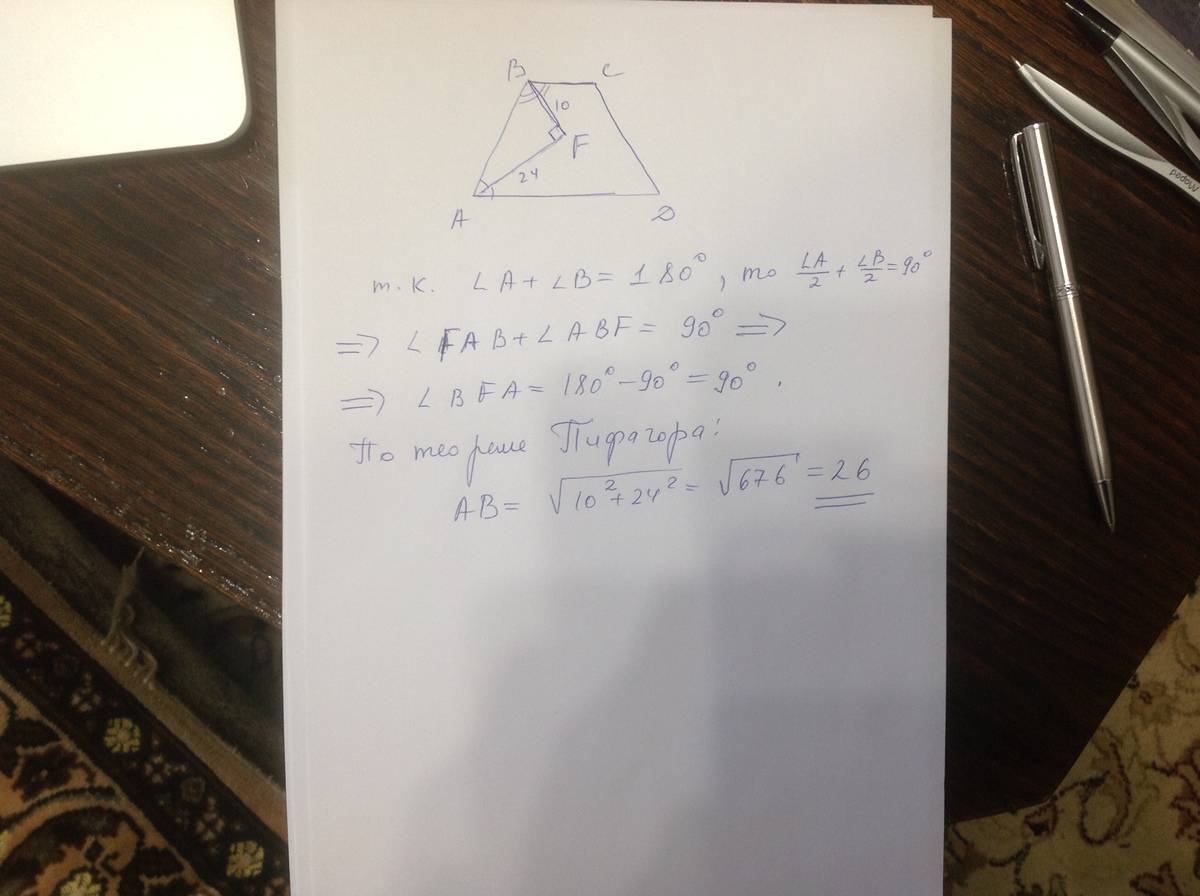 B C
10
F
24
A D
т.к. ∠A + ∠B = 180°, то ∠A/2 + ∠B/2 = 90°
=> ∠FAB + ∠ABF = 90° =>
=> ∠BFA = 180° - 90° = 90°.
По теореме Пифагора:
AB = √(10² + 24²) = √676 = 26